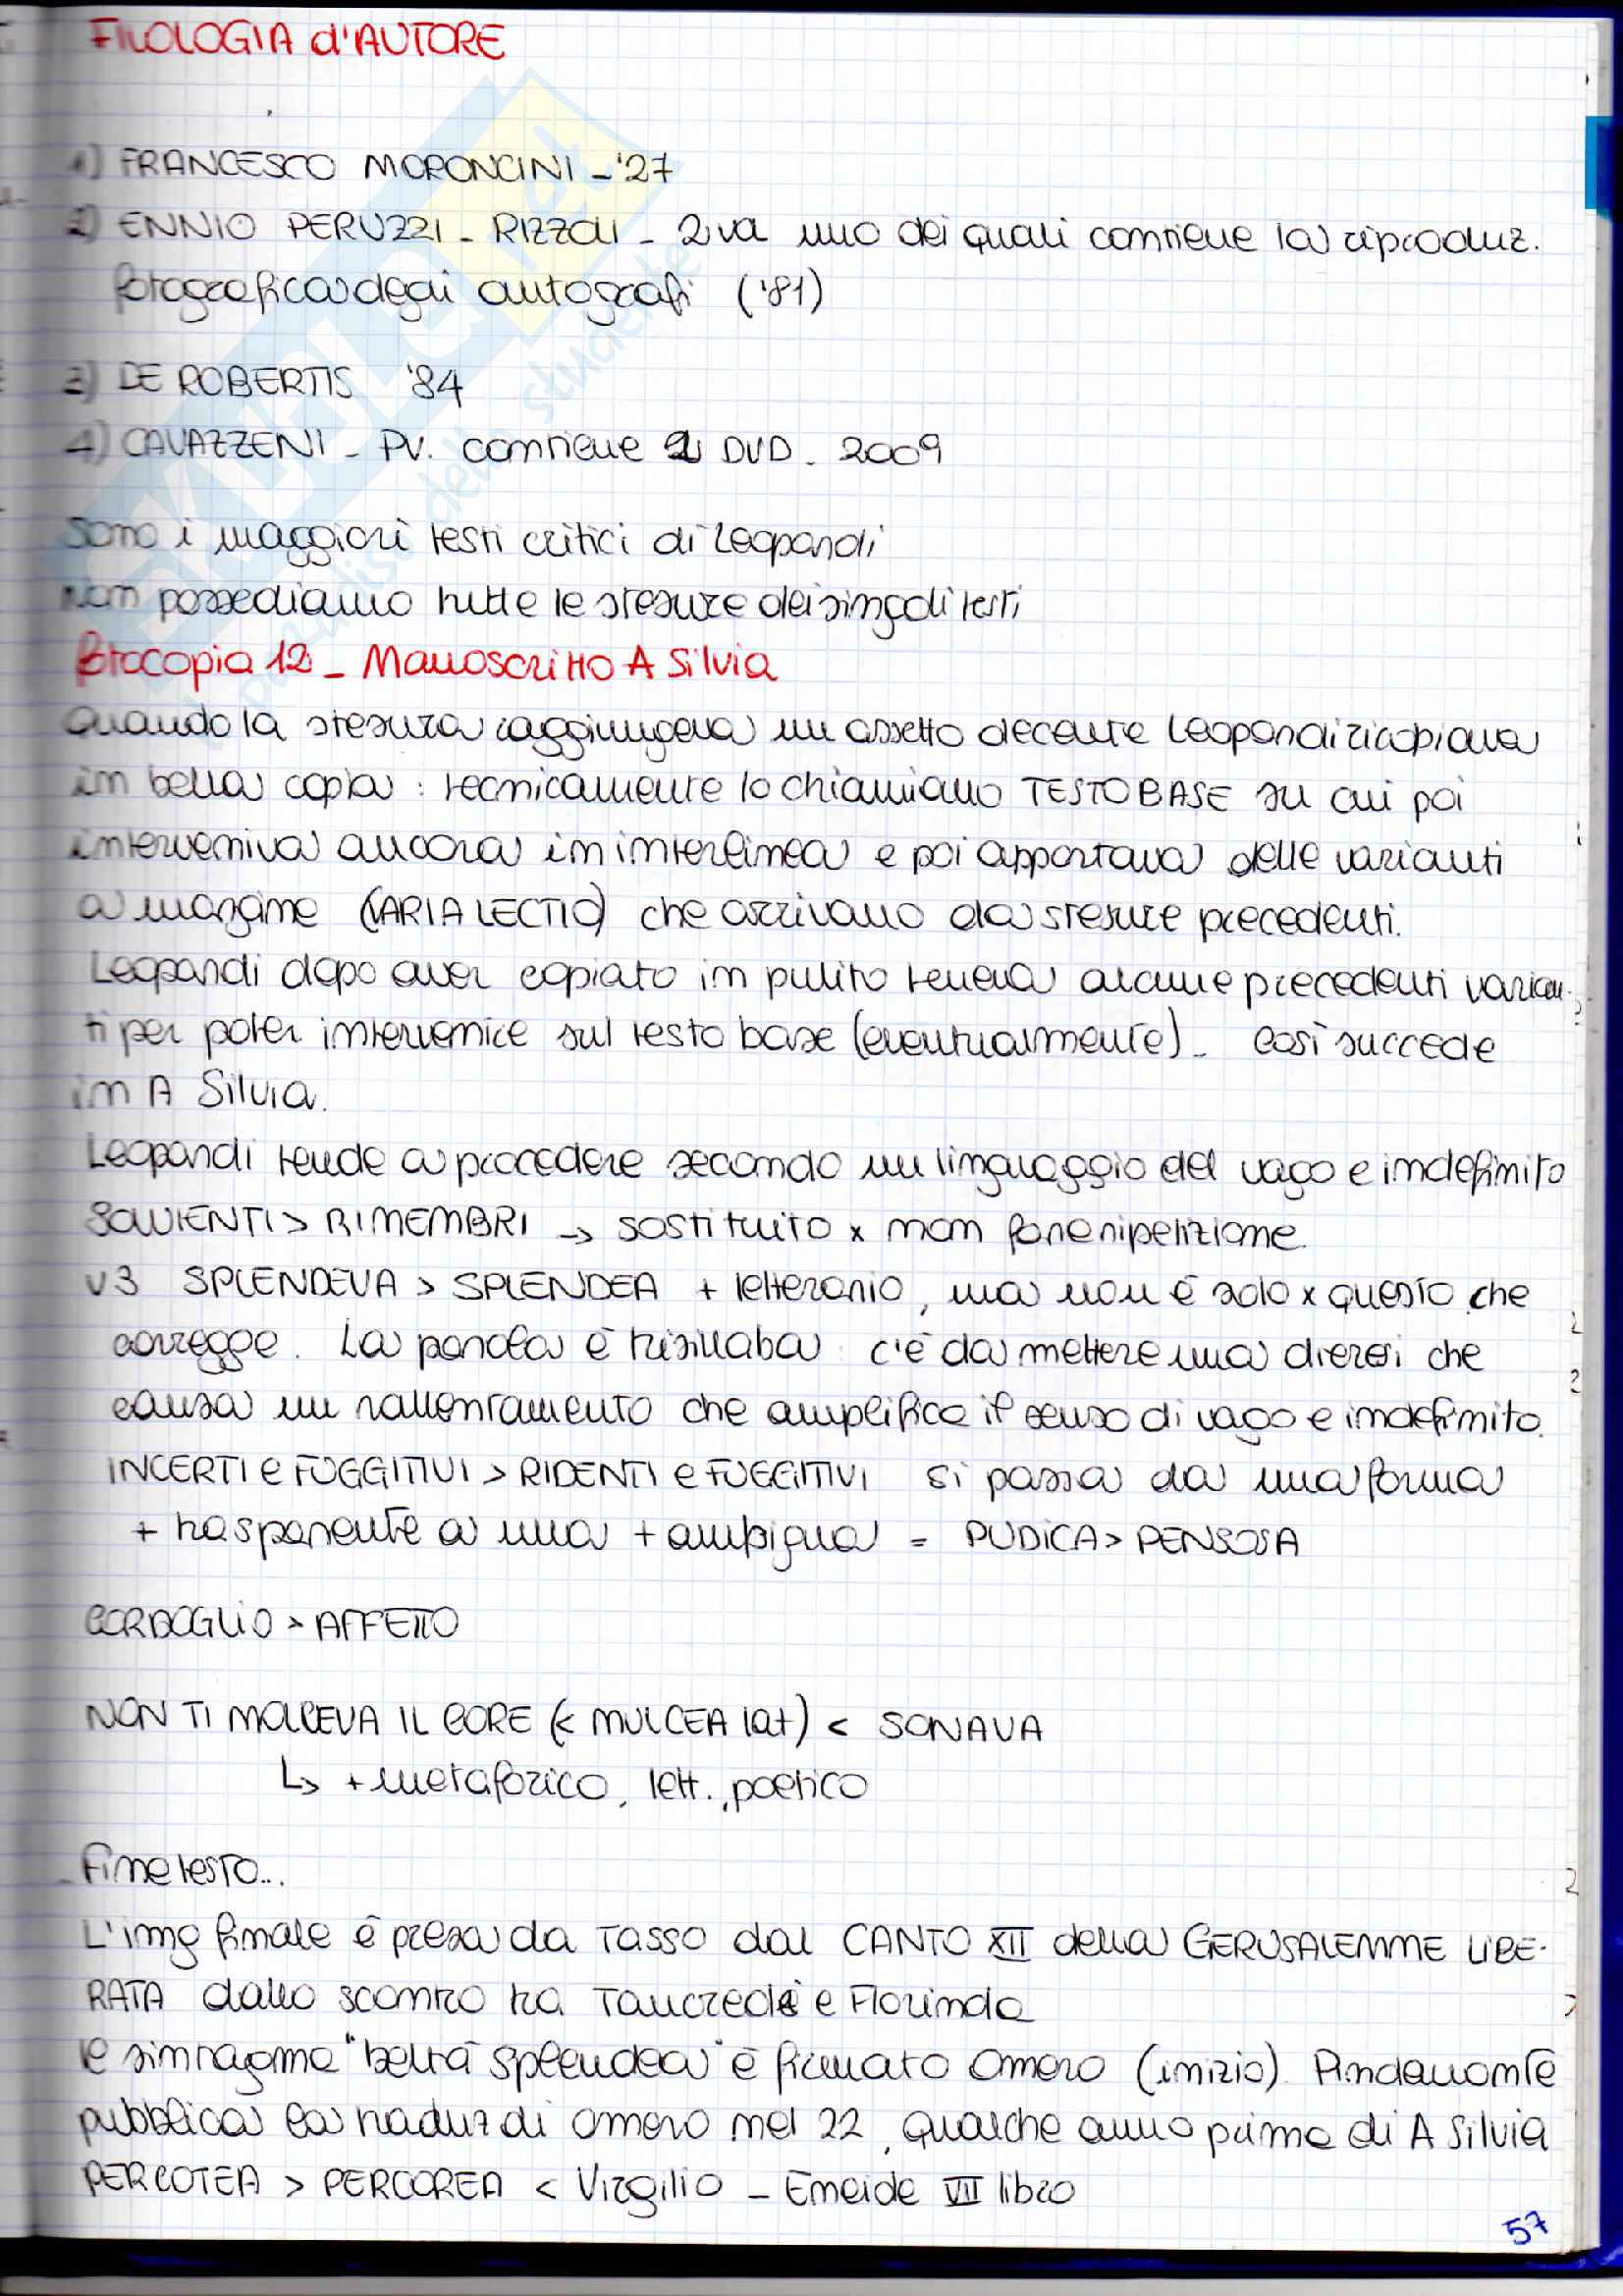 FILOLOGIA d'AUTORE
1) FRANCESCO MORONCINI - '27
2) ENNIO PERUZZI - RIZZOLI - 2 va uno dei quali contiene la riproduz.
fotografica degli autografi ('81)
3) DE ROBERTIS '84
4) CAVAZZENI - PV. contiene 2 DVD - 2009
Sono i maggiori testi critici di Leopardi
non possediamo tutte le stesure dei singoli testi
Fotocopia 12 - Manoscritto A Silvia
Quando la stesura raggiungeva un assetto decente Leopardi ricopiava
in bella copia : tecnicamente lo chiamiamo TESTO BASE su cui poi
interveniva ancora in interlinea e poi apportava delle varianti
a margine (VARIA LECTIO) che arrivano da stesure precedenti.
Leopardi dopo aver copiato in pulito teneva alcune precedenti varian-
ti per poter intervenire sul testo base (eventualmente) - così succede
in A Silvia.
Leopardi tende a procedere secondo un linguaggio del vago e indefinito
SOVVIENTI > RIMEMBRI → sostituito x non fare ripetizione.
v3 SPLENDEVA > SPLENDEA + letterario, ma non è solo x questo che
corregge. La parola è trisillaba : c'è da mettere una dieresi che
causa un rallentamento che amplifica il senso di vago e indefinito.
INCERTI e FUGGITIVI > RIDENTI e FUGGITIVI si passa da una forma
+ trasparente a una + ambigua = PUDICA > PENSOSA
CORDOGLIO > AFFETTO
NON TI MOLCEVA IL CORE (< MULCEA lat) < SONAVA
↳ + metaforico, lett., poetico
Fine testo...
L'img finale è presa da Tasso dal CANTO XII della GERUSALEMME LIBE-
RATA dallo scontro tra Tancredi e Florinda
le sintagma "beltà splendea" è firmato Omero (inizio). Pindemonte
pubblica la traduz di Omero nel 22, qualche anno prima di A Silvia
PERCOTEA > PERCOREA < Virgilio - Eneide VII libro
57